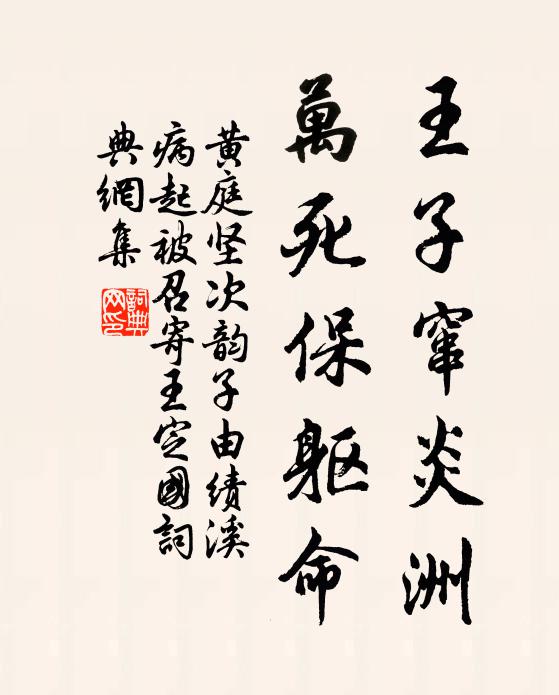 王子窜炎洲
萬死保躯命
黄庭坚次韵子由绩溪
病起被召寄王定國詞
典網集
詞典網印